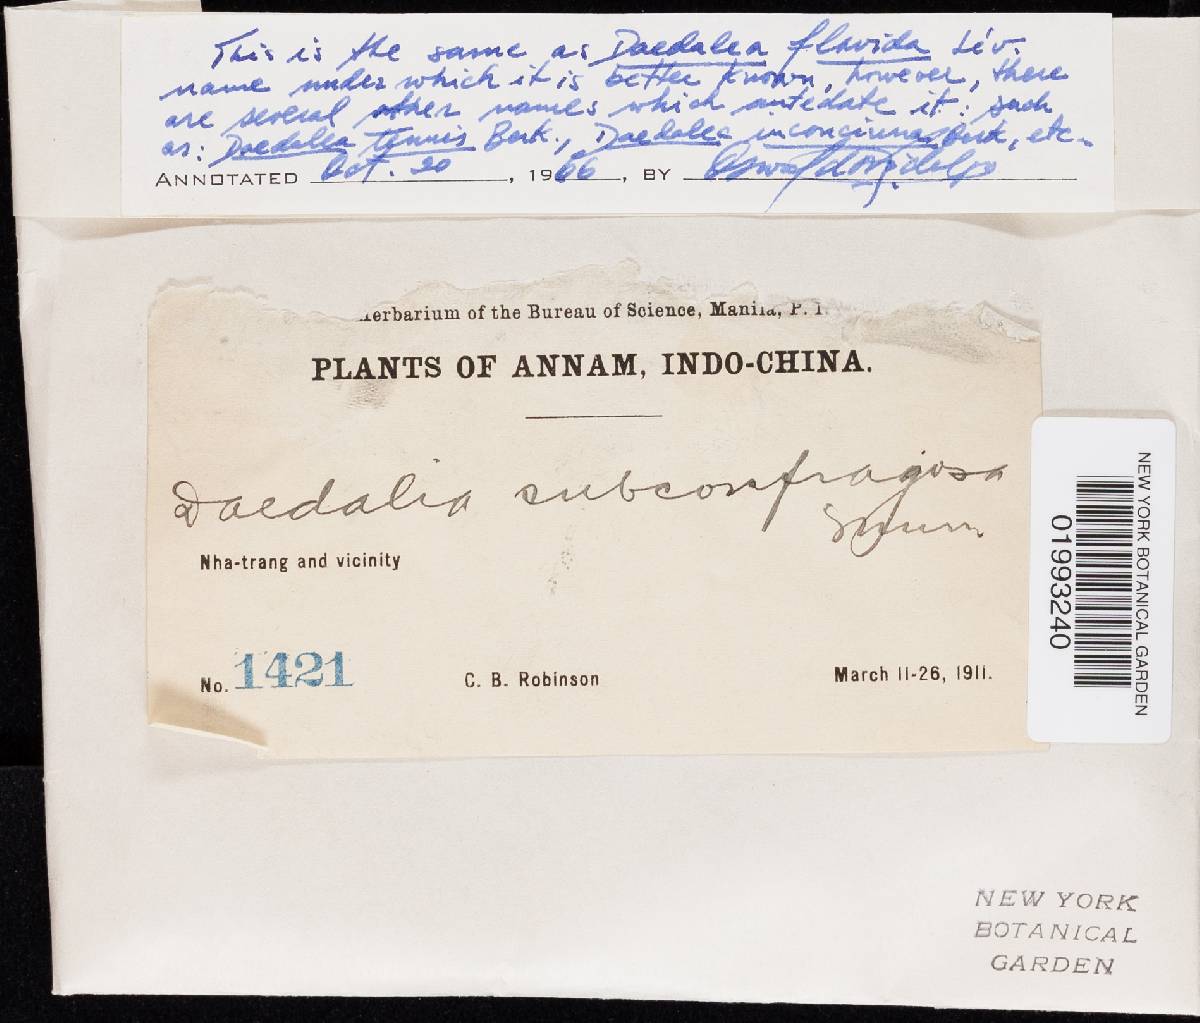 This is the same as Daedalea flavida Lév.
name under which it is better known, however, there
are several other names which antedate it: such
as: Daedalea tenuis Berk., Daedalea inconcinna Berk, etc.
ANNOTATED Oct. 20, 1966, BY
erbarium of the Bureau of Science, Manila, P. I
PLANTS OF ANNAM, INDO-CHINA.
Daedalia subconfragosa
Nha-trang and vicinity
No. 1421 C. B. Robinson March 11-26, 1911.
NEW YORK BOTANICAL GARDEN
01993240
NEW YORK
BOTANICAL
GARDEN